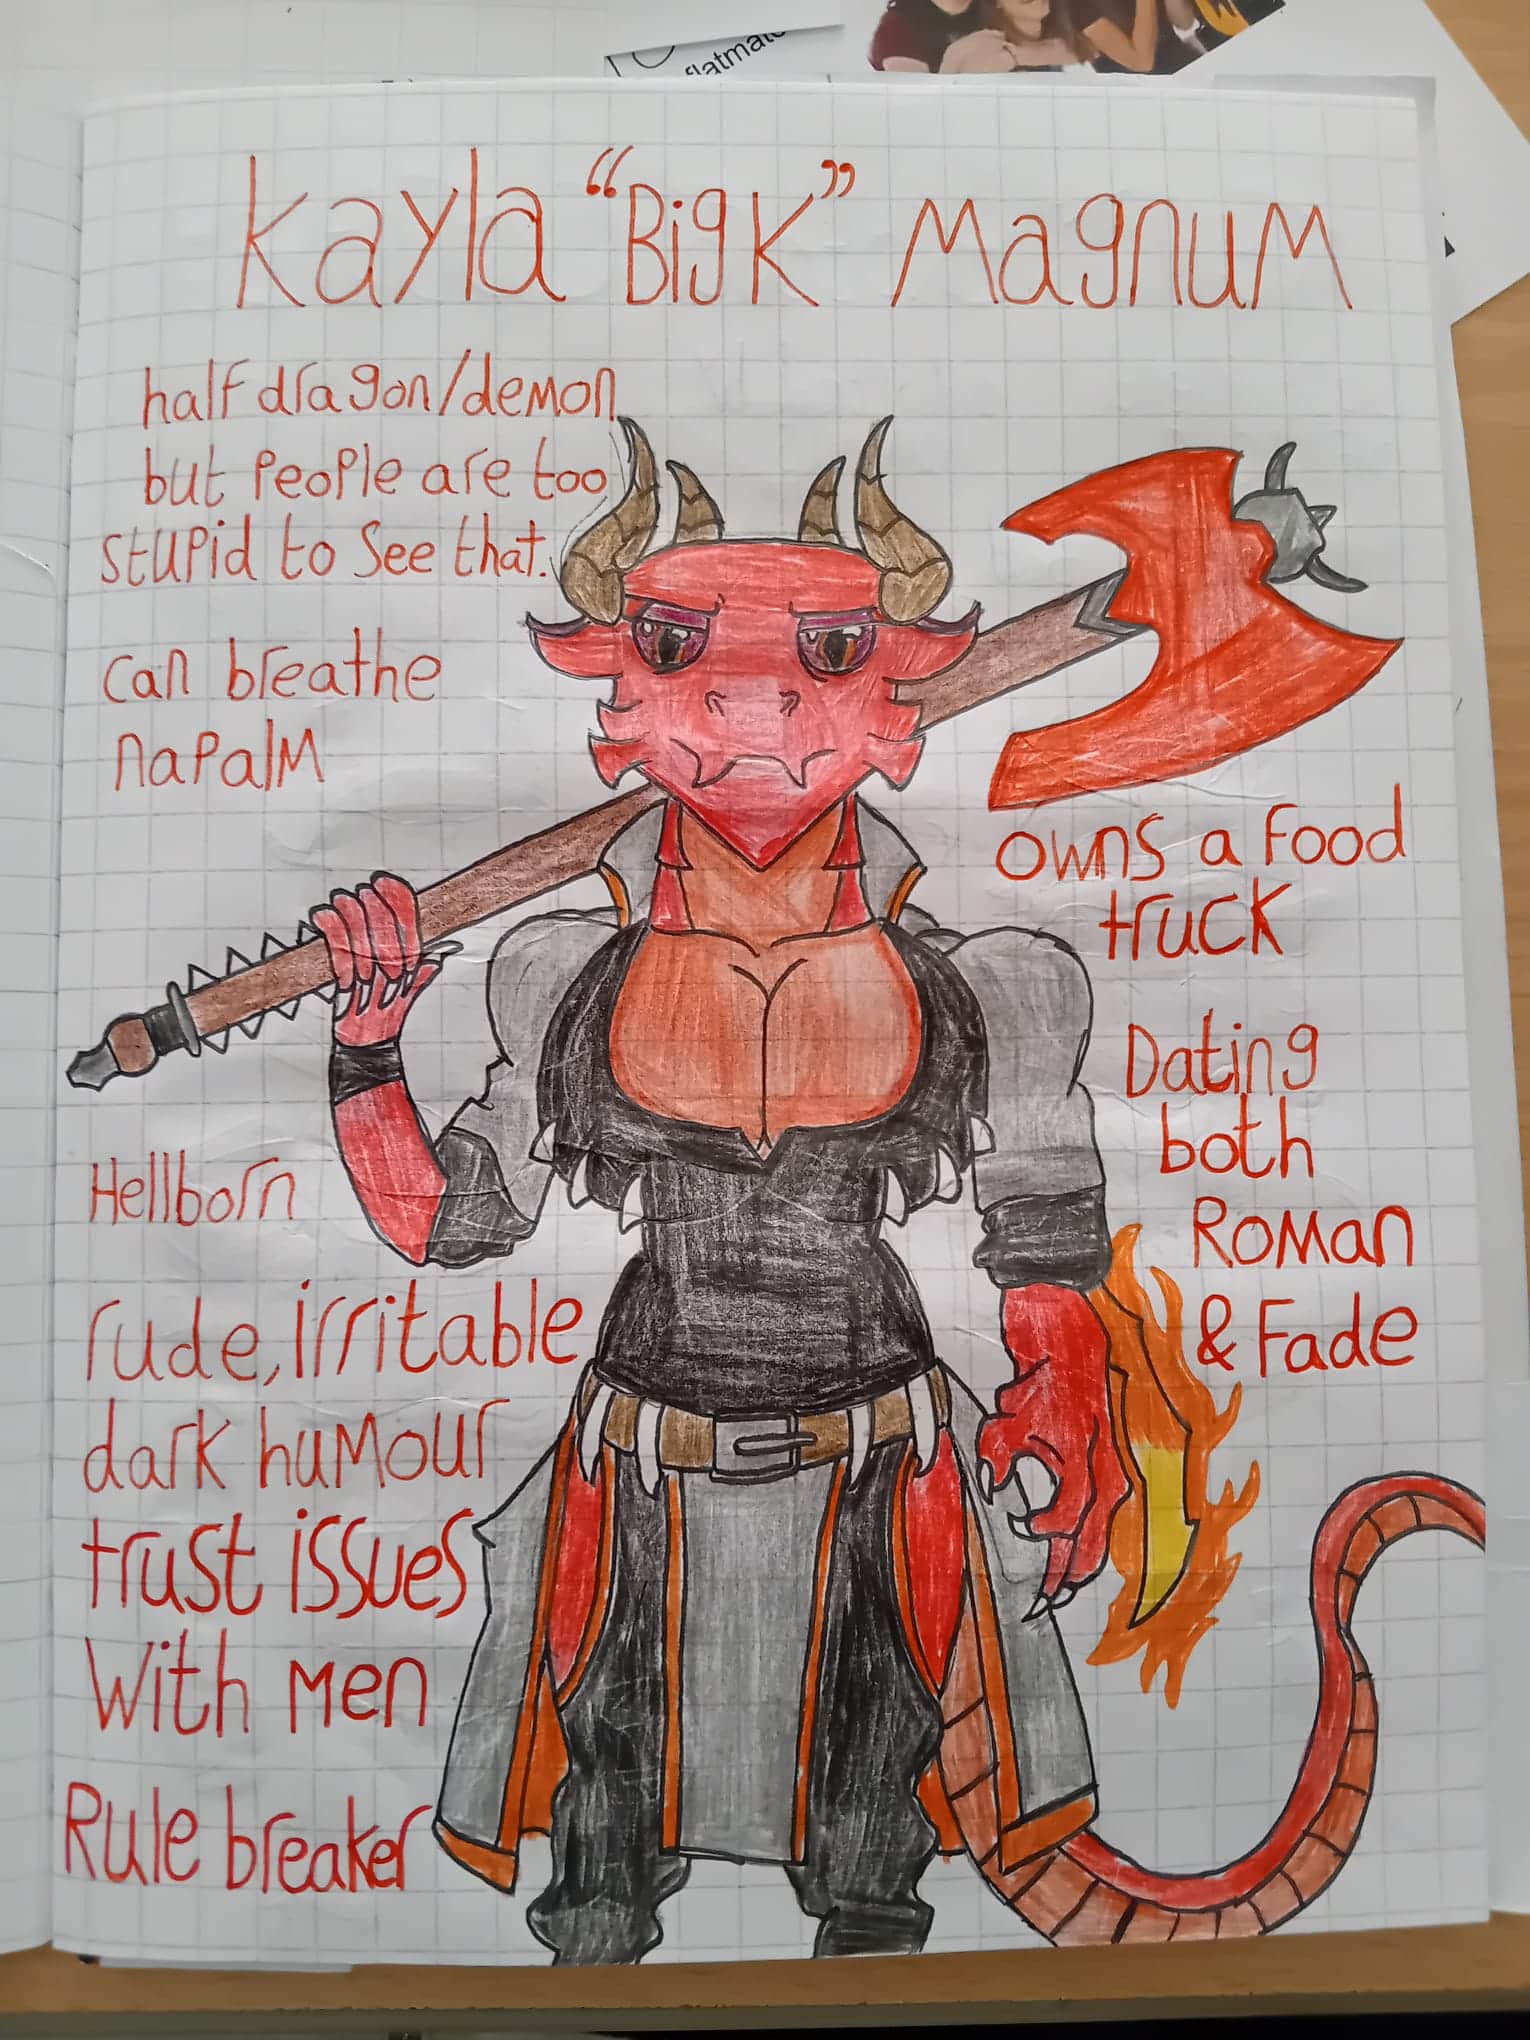 flatmate
Kayla “Big K” Magnum
half dragon/demon
but people are too
stupid to see that.
can breathe
napalm
owns a food
truck
Dating
both
Roman
& Fade
Hellborn
rude, irritable
dark humour
trust issues
with men
Rule breaker